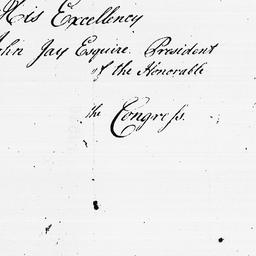 His Excellency
John Jay Esquire. President
of the Honorable
the Congress.